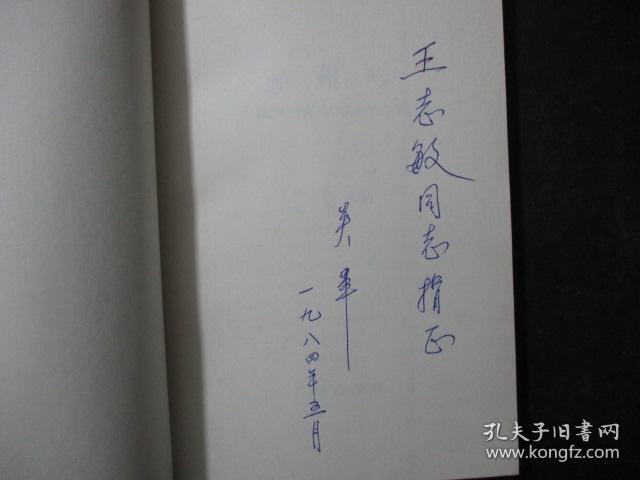 王志敏同志指正
一九八四年五月
孔夫子旧书网
www.kongfz.com